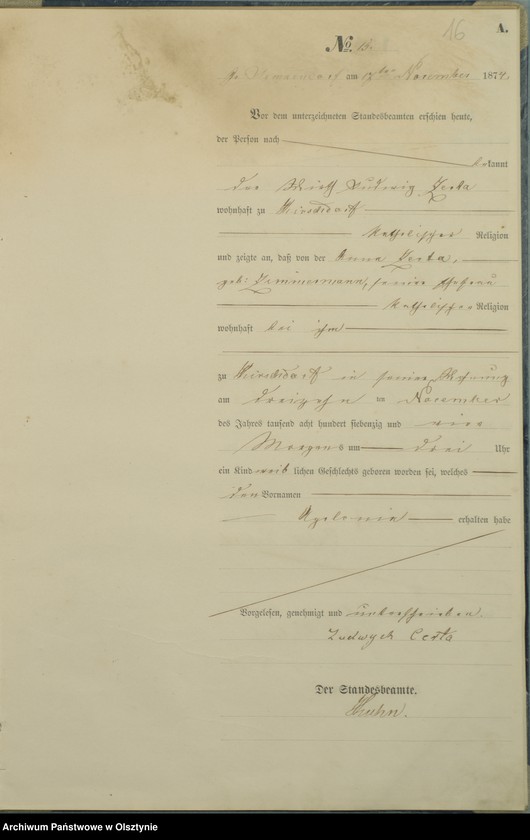 16
A.
No. 13.
am 17ten November 1874.
Vor dem unterzeichneten Standesbeamten erschien heute,
der Person nach
bekannt
der Wirth Ludwig Zerta
wohnhaft zu
katholischer Religion
und zeigte an, daß von der Anna Zerta,
geb: Zimmermann, seiner Ehefrau
katholischer Religion
wohnhaft bei ihm
zu in seiner Wohnung
am dreizehn ten November
des Jahres tausend acht hundert siebenzig und vier
Morgens um drei Uhr
ein Kind weiblichen Geschlechts geboren worden sei, welches
den Vornamen
Apolonia erhalten habe
Vorgelesen, genehmigt und unterschrieben.
Ludwyck Certa
Der Standesbeamte.
Archiwum Państwowe w Olsztynie